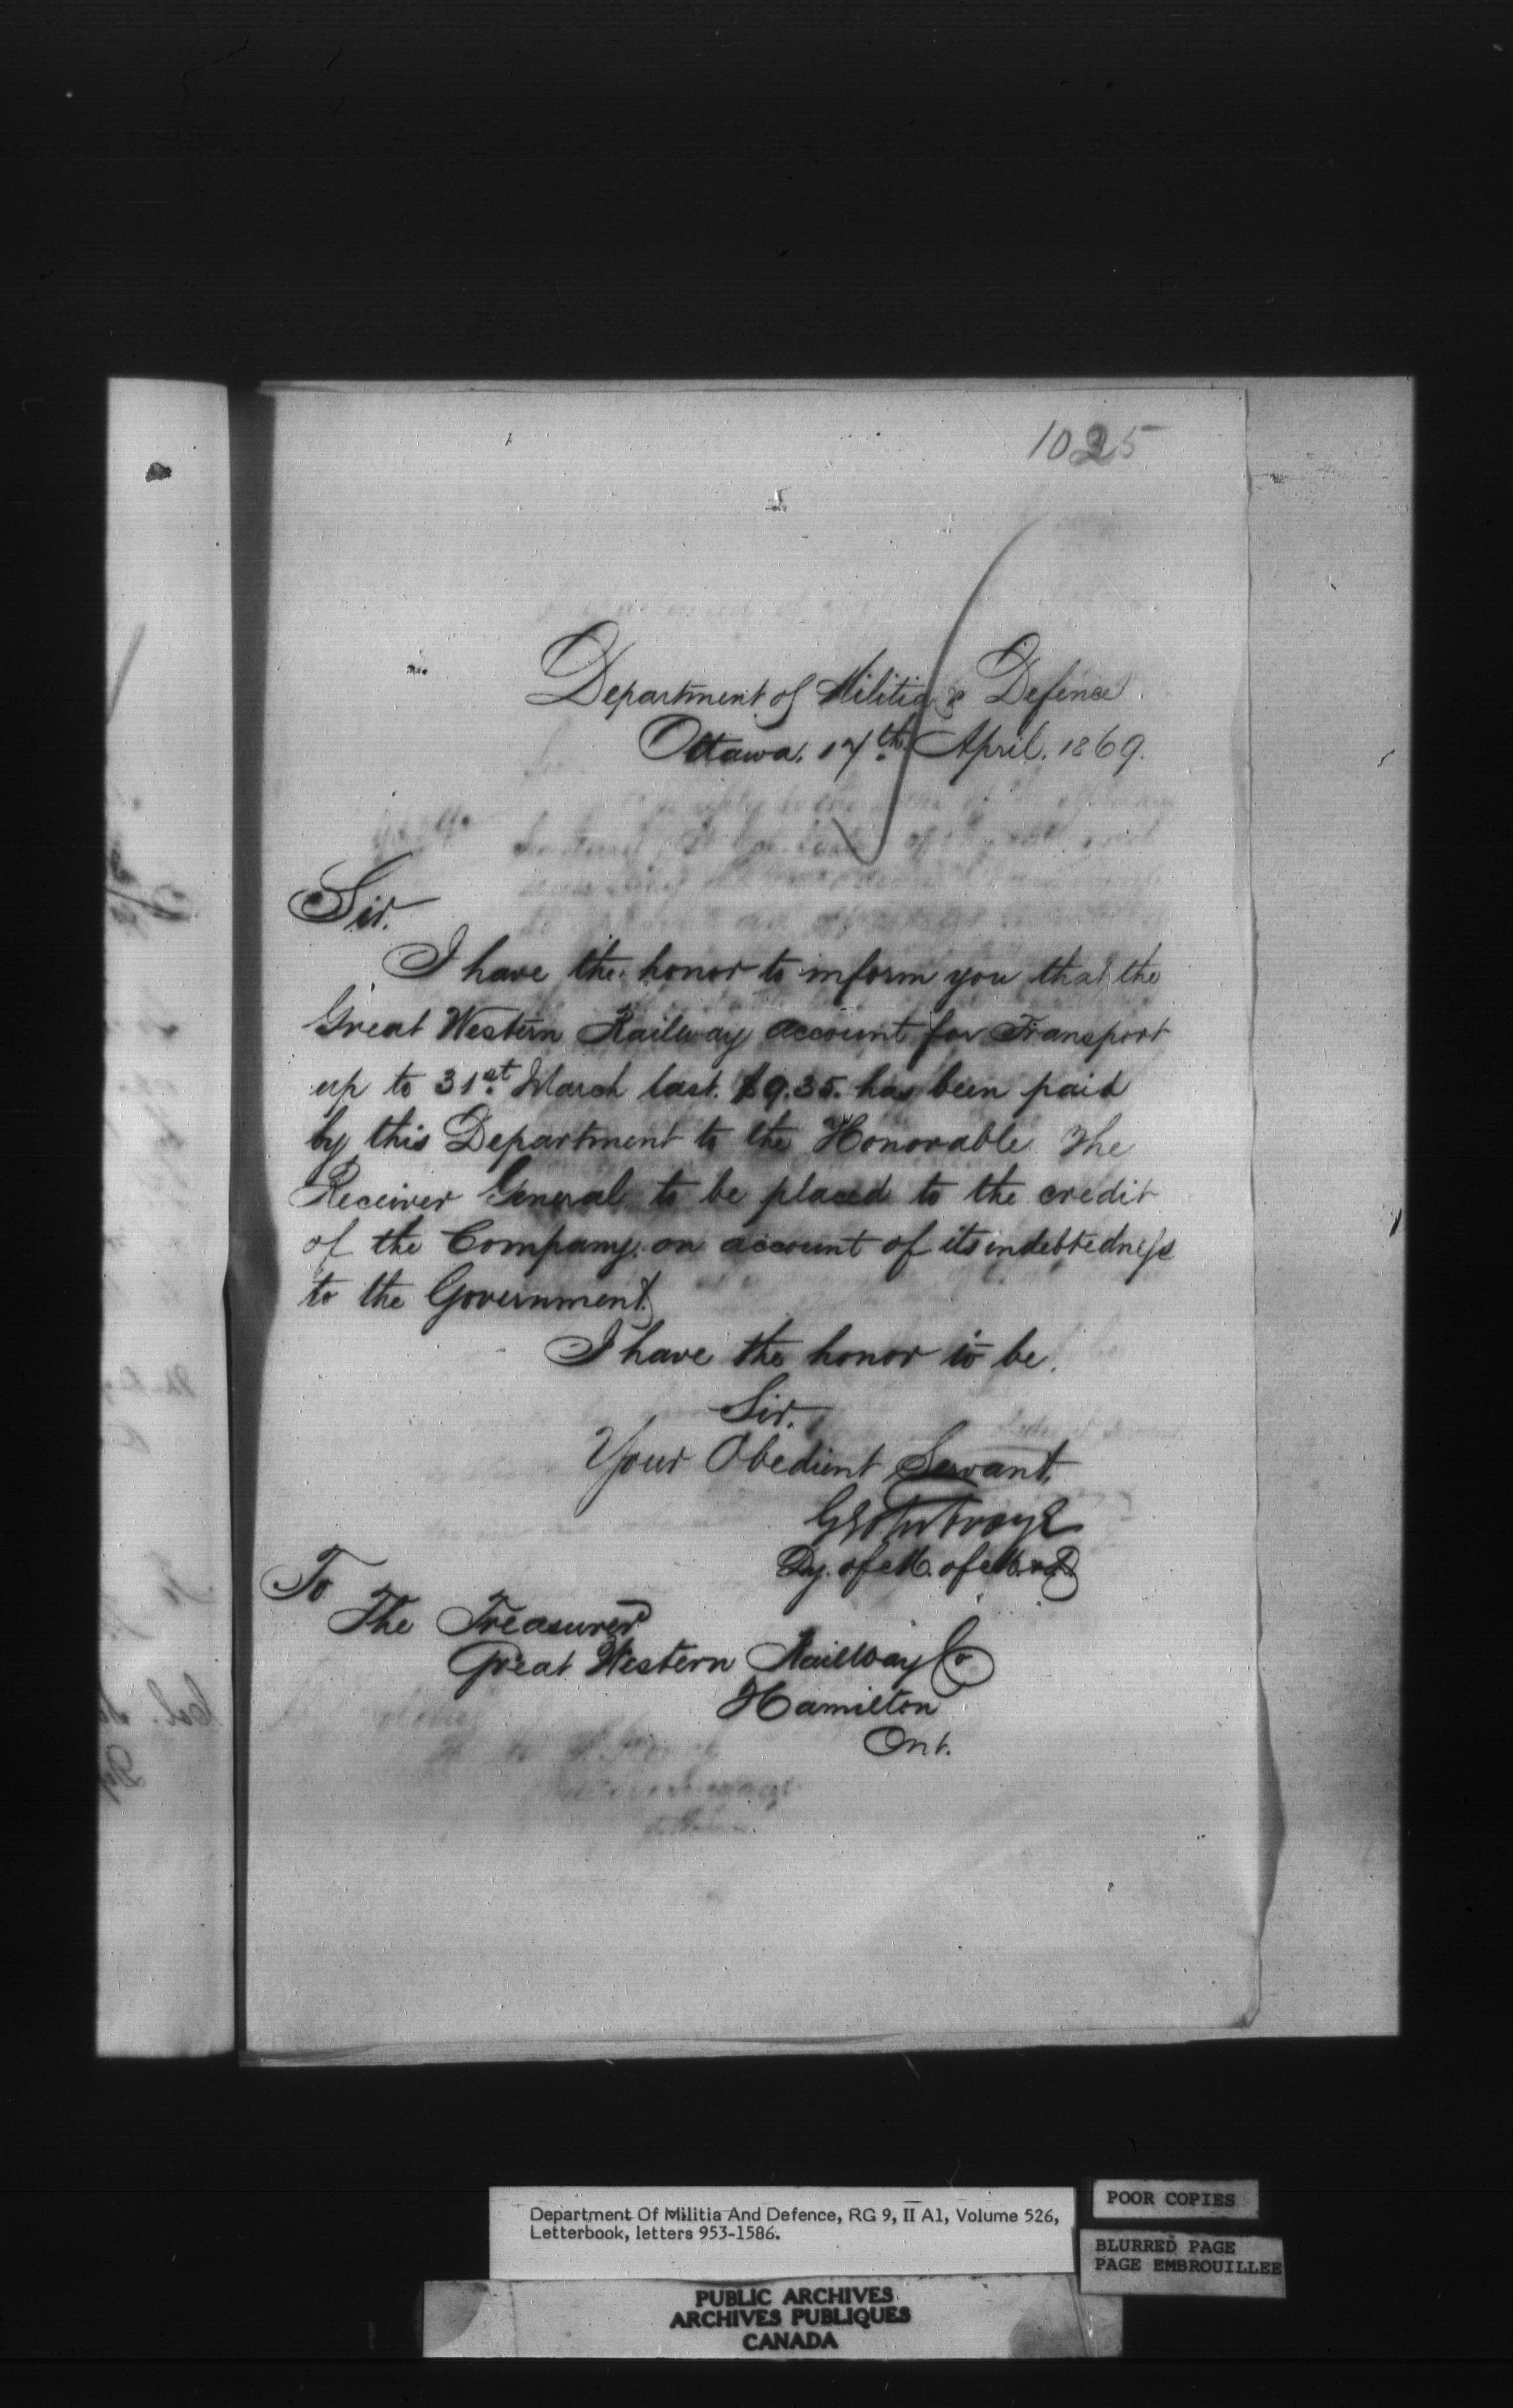 1025
Department of Militia & Defence
Ottawa, 17th April, 1869.
Sir.
I have the honor to inform you that the
Great Western Railway account for Transport
up to 31st March last. $9.35. has been paid
by this Department to the Honorable The
Receiver General to be placed to the credit
of the Company, on account of its indebtedness
to the Government.
I have the honor to be.
Sir.
Your Obedient Servant,
Dy. of M. of M. & D
To
The Treasurer
Great Western Railway Co
Hamilton
Ont.
Department Of Militia And Defence, RG 9, II A1, Volume 526,
Letterbook, letters 953-1586.
POOR COPIES
BLURRED PAGE
PAGE EMBROUILLEE
PUBLIC ARCHIVES
ARCHIVES PUBLIQUES
CANADA